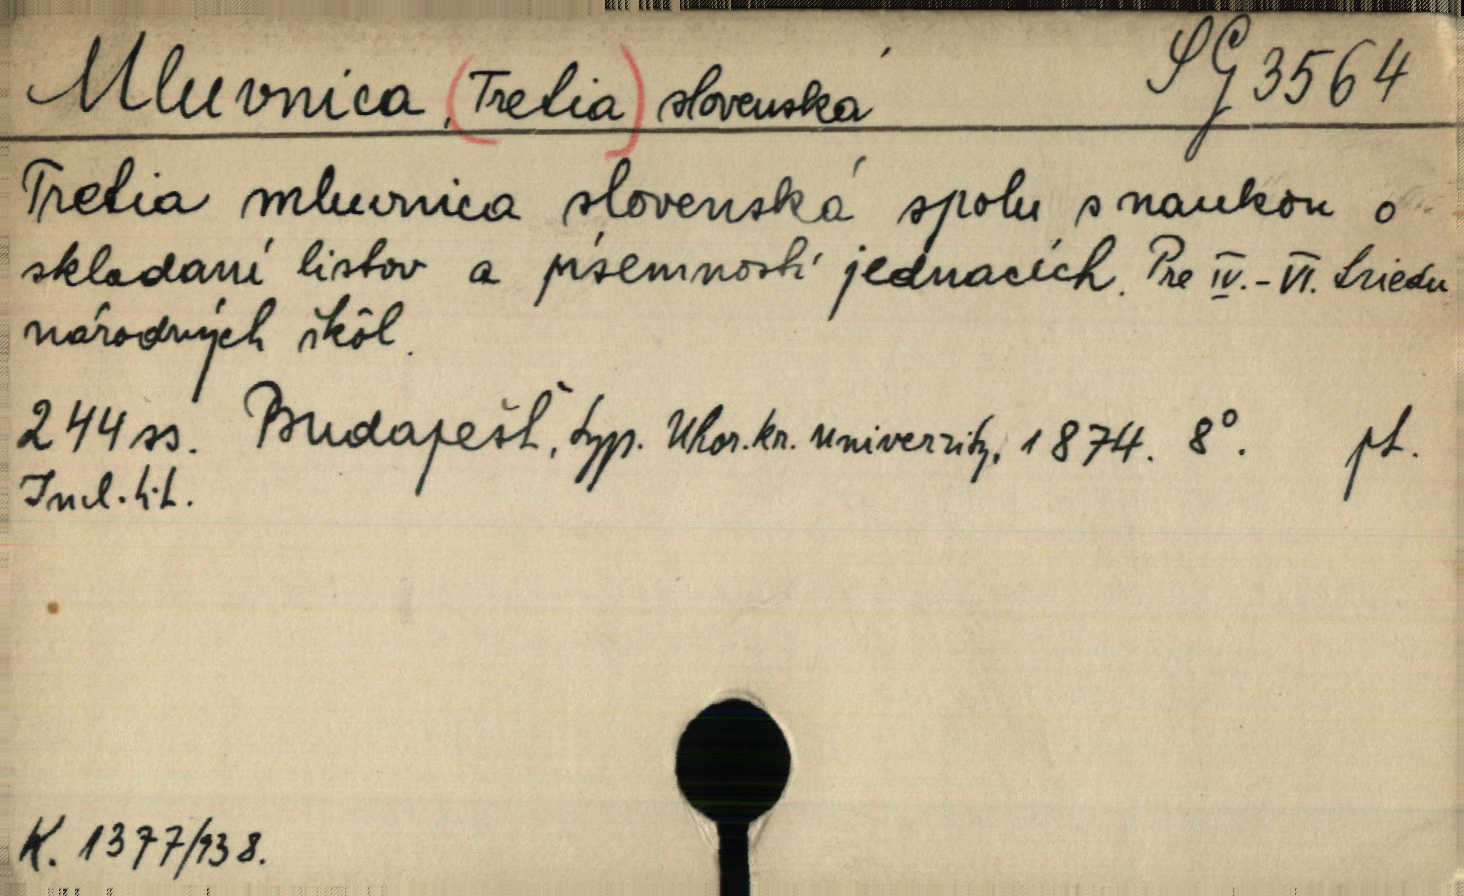 Mluvnica, (Tretia) slovenská SG 3564
Tretia mluvnica slovenská spolu s naukou o
skladaní listov a písemností jednacích. Pre IV.-VI. triedu
národných škôl.
244 ss. Budapešť, typ. Uhor. kr. univerzity, 1874. 8°. pt.
Incl. tit.
K. 1377/938.